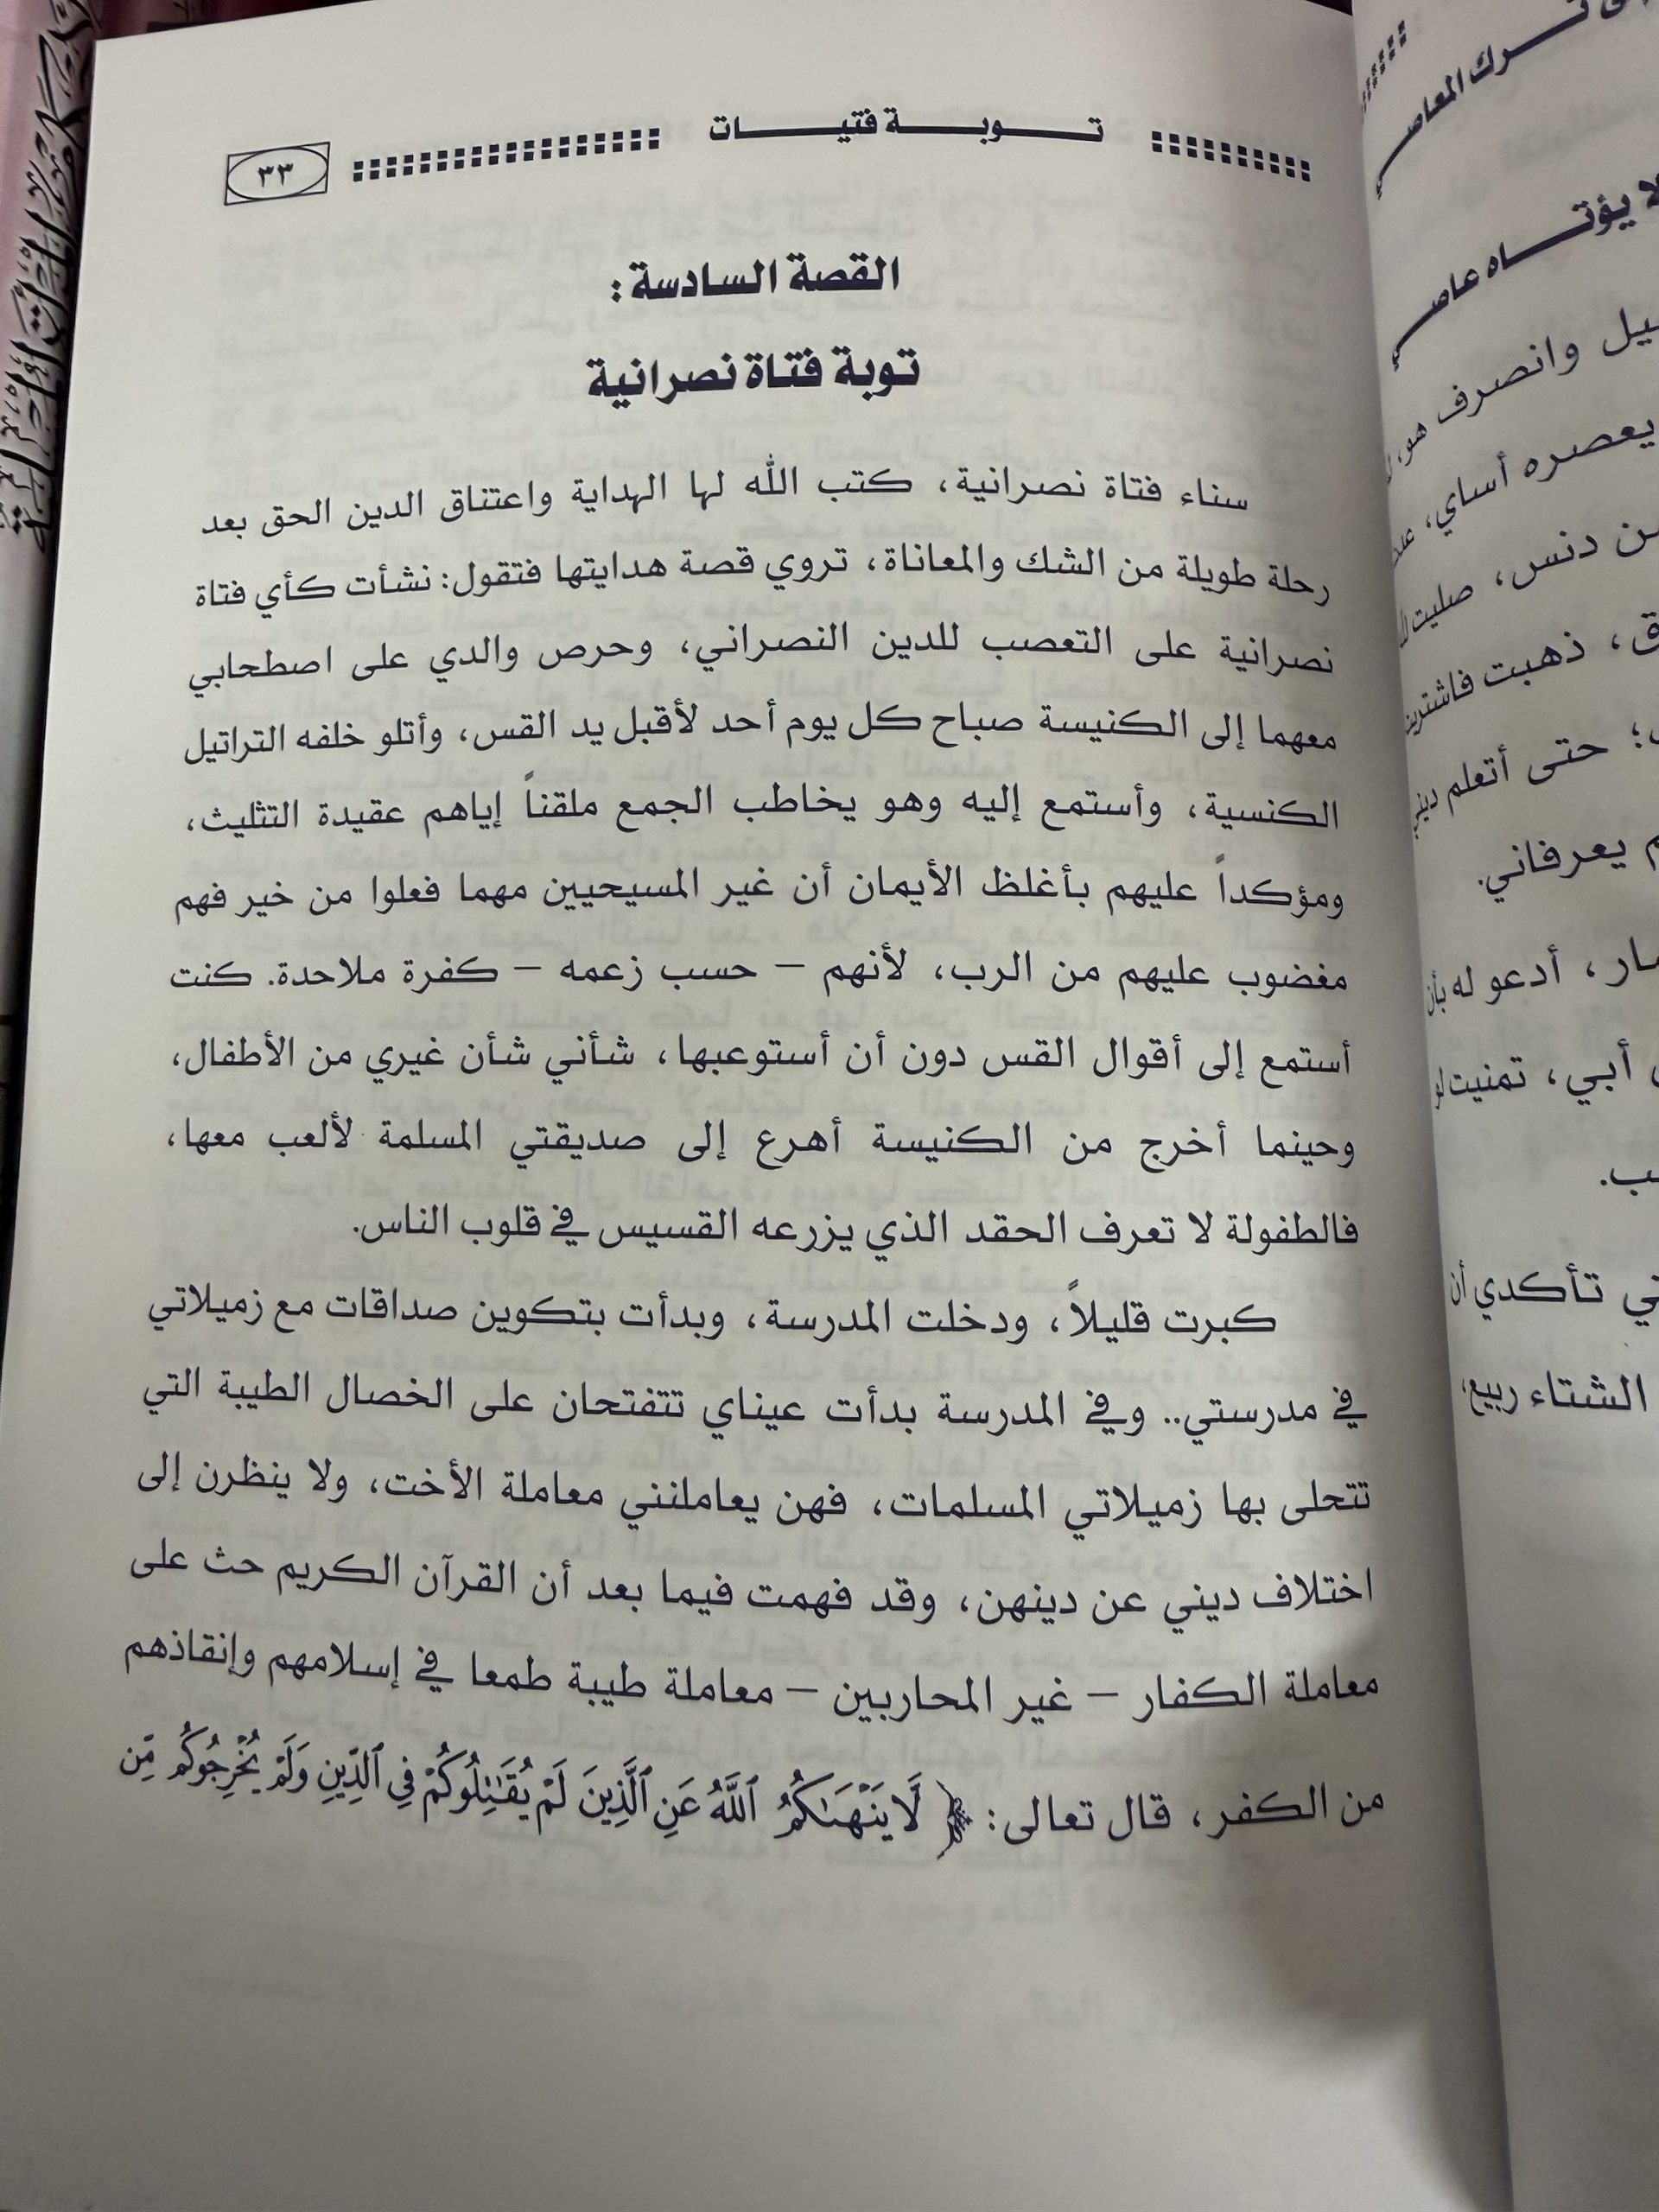 توبة فتيات
٣٣
القصة السادسة :
توبة فتاة نصرانية
سناء فتاة نصرانية، كتب الله لها الهداية واعتناق الدين الحق بعد
رحلة طويلة من الشك والمعاناة، تروي قصة هدايتها فتقول: نشأت كأي فتاة
نصرانية على التعصب للدين النصراني، وحرص والدي على اصطحابي
معهما إلى الكنيسة صباح كل يوم أحد لأقبل يد القس، وأتلو خلفه التراتيل
الكنسية، وأستمع إليه وهو يخاطب الجمع ملقناً إياهم عقيدة التثليث،
ومؤكداً عليهم بأغلظ الأيمان أن غير المسيحيين مهما فعلوا من خير فهم
مغضوب عليهم من الرب، لأنهم – حسب زعمه – كفرة ملاحدة. كنت
أستمع إلى أقوال القس دون أن أستوعبها، شأني شأن غيري من الأطفال،
وحينما أخرج من الكنيسة أهرع إلى صديقتي المسلمة لألعب معها،
فالطفولة لا تعرف الحقد الذي يزرعه القسيس في قلوب الناس.
كبرت قليلاً، ودخلت المدرسة، وبدأت بتكوين صداقات مع زميلاتي
في مدرستي.. وفي المدرسة بدأت عيناي تتفتحان على الخصال الطيبة التي
تتحلى بها زميلاتي المسلمات، فهن يعاملنني معاملة الأخت، ولا ينظرن إلى
اختلاف ديني عن دينهن، وقد فهمت فيما بعد أن القرآن الكريم حث على
معاملة الكفار – غير المحاربين – معاملة طيبة طمعا في إسلامهم وإنقاذهم
من الكفر، قال تعالى: ﴿ لَّا يَنْهَىٰكُمُ ٱللَّهُ عَنِ ٱلَّذِينَ لَمْ يُقَٰتِلُوكُمْ فِى ٱلدِّينِ وَلَمْ يُخْرِجُوكُم مِّن
ترك المعاصي
لا يؤتاه عاصي
وانصرف هو،
يعصره أساي،
دنس، صليت
ذهبت فاشتريت
حتى أتعلم ديني
يعرفاني.
أدعو له بأن
أبي، تمنيت لو
تأكدي أن
الشتاء ربيع،